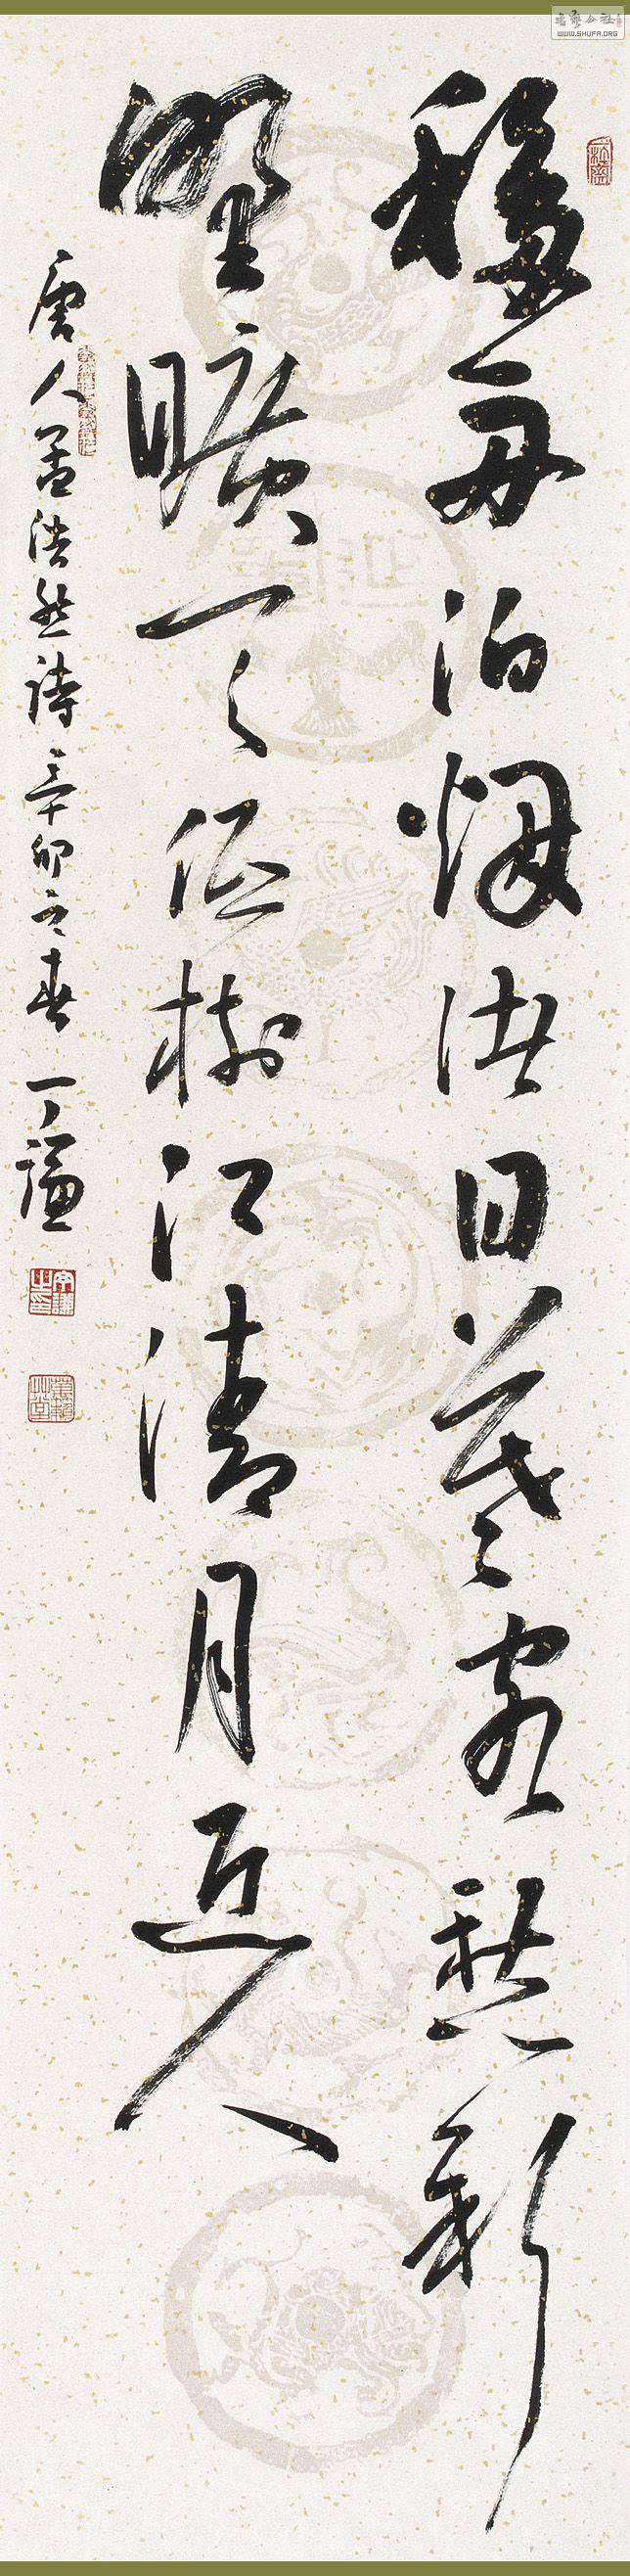 移舟泊烟渚日暮客愁新
野曠天低樹江清月近人
唐人孟浩然詩辛卯之春 丁謙
书艺公社
WWW.SHUFA.ORG